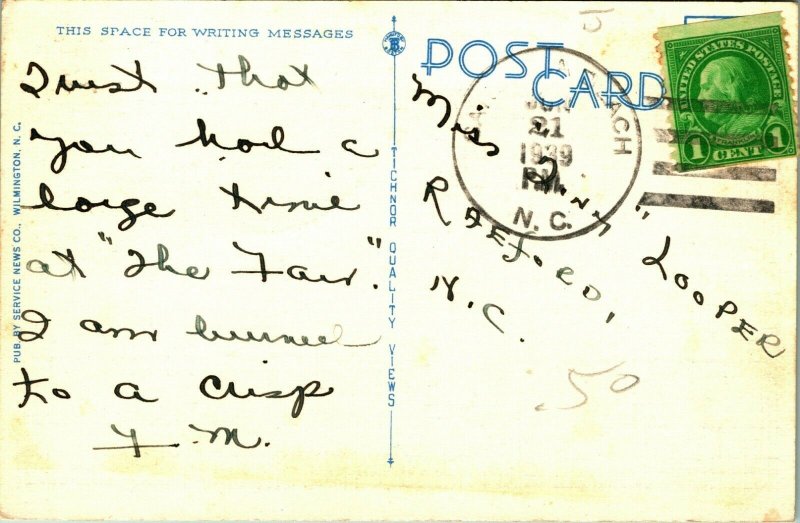 THIS SPACE FOR WRITING MESSAGES
Trust that
you had a
large time
at "The Fair."
I am burned
to a crisp
F. M.
PUB. BY SERVICE NEWS CO., WILMINGTON, N. C.
TICHNOR QUALITY VIEWS
POST CARD
BEACH
JUN
21
1939
PM
N. C.
UNITED STATES POSTAGE
FRANKLIN
1 CENT 1
Miss "Looper
RAEFORD,
N.C.
.50